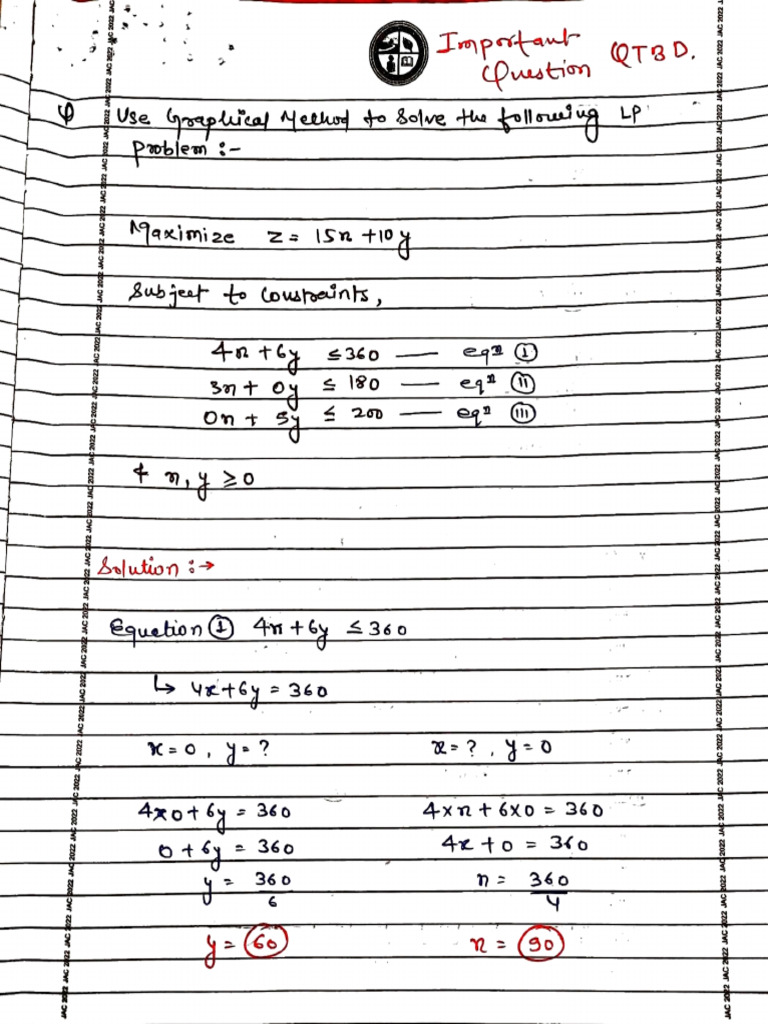 Important
Question QTBD.
Q Use Graphical Method to Solve the following LP
Problem :-
Maximize z = 15x + 10y
Subject to constraints,
4x + 6y ≤ 360 — eqⁿ (I)
3x + 0y ≤ 180 — eqⁿ (II)
0x + 5y ≤ 200 — eqⁿ (III)
& x, y ≥ 0
Solution :→
Equation (1) 4x + 6y ≤ 360
↳ 4x + 6y = 360
x = 0, y = ? x = ?, y = 0
4x0 + 6y = 360 4xx + 6x0 = 360
0 + 6y = 360 4x + 0 = 360
y = 360/6 x = 360/4
y = 60 x = 90
JAC 2022 JAC 2022 JAC 2022 JAC 2022 JAC 2022